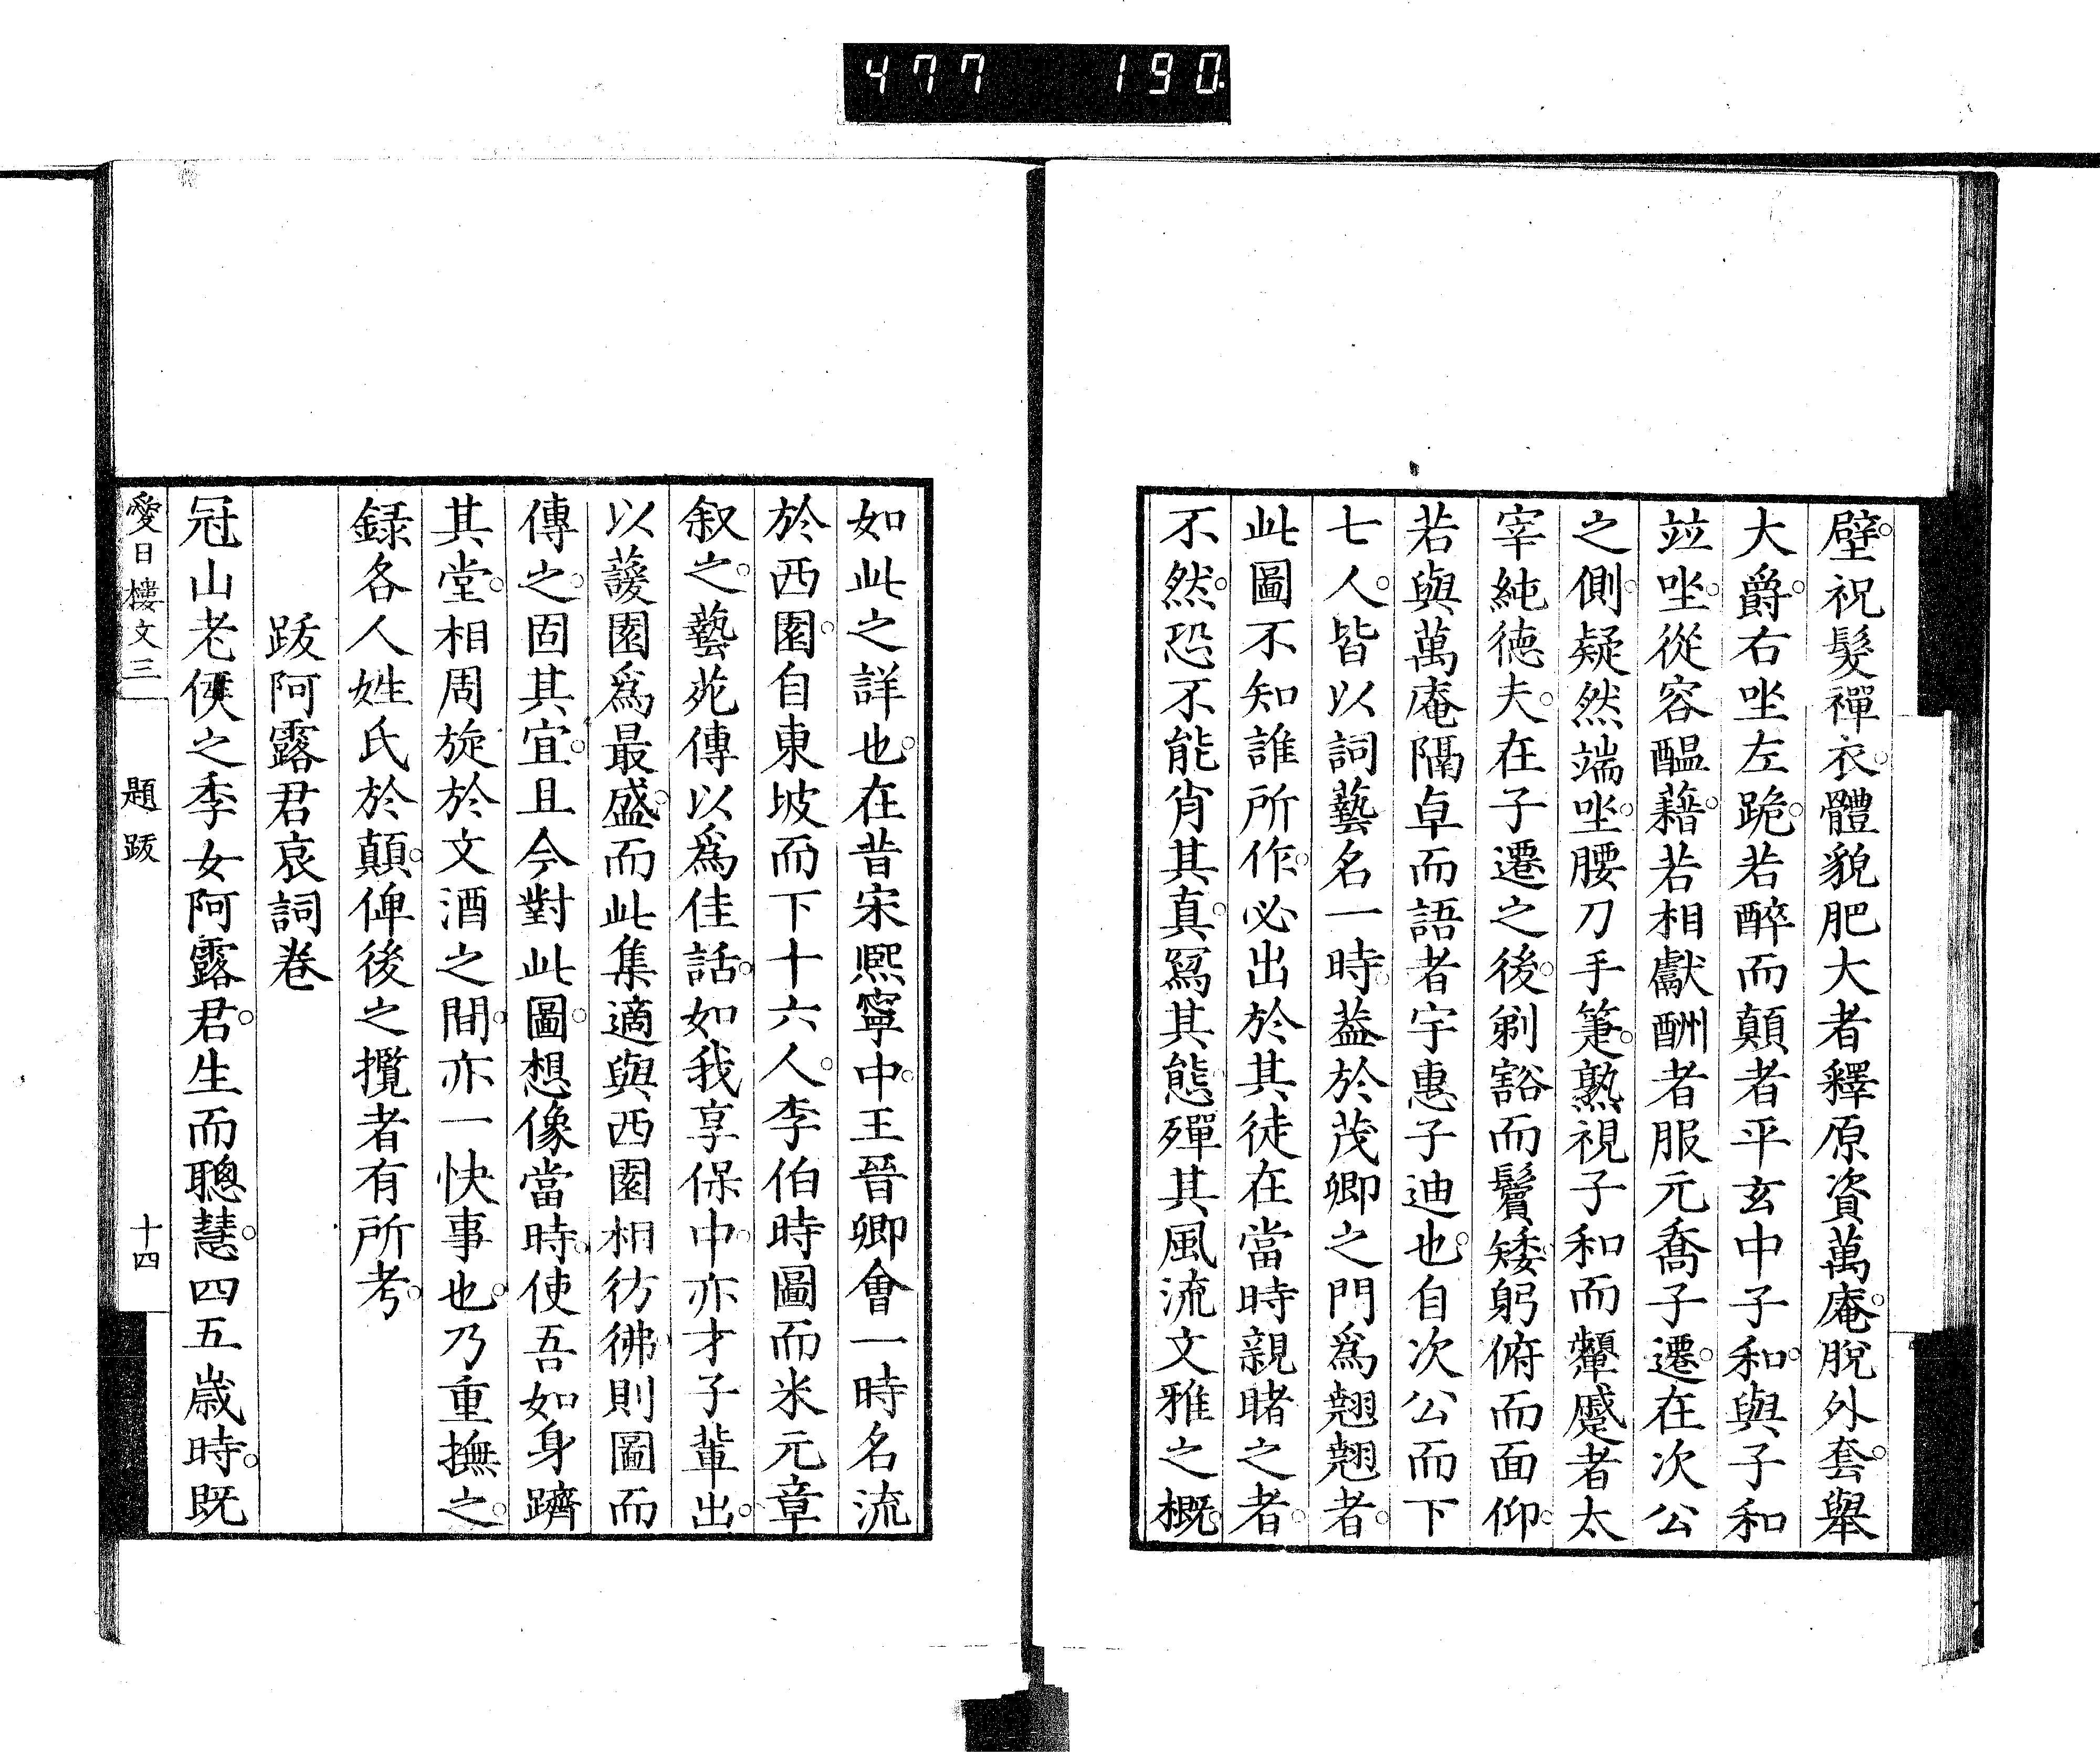 477 190
壁。祝髮禪衣。體貌肥大者釋原資萬庵。脫外套。舉
大爵。右坐左跪。若醉而顛者平玄中子和。與子和
竝坐。從容醞藉。若相獻酬者服元喬子遷。在次公
之側。疑然端坐。腰刀手箑。熟視子和而顰蹙者太
宰純德夫。在子遷之後。剃豁而鬢矮。躬俯而面仰。
若與萬庵隔卓而語者宇惠子迪也。自次公而下
七人。皆以詞藝名一時。葢於茂卿之門爲翹翹者。
此圖不知誰所作。必出於其徒在當時親睹之者。
不然。恐不能肖其真。寫其態。殫其風流文雅之概。
如此之詳也。在昔宋熙寧中。王晉卿會一時名流
於西園。自東坡而下十六人。李伯時圖而米元章
叙之。藝苑傳以爲佳話。如我享保中。亦才子輩出。
以蘐園爲最盛。而此集適與西園相彷彿。則圖而
傳之。固其宜。且今對此圖。想像當時。使吾如身躋
其堂。相周旋於文酒之間。亦一快事也。乃重撫之。
録各人姓氏於顛。俾後之攬者有所考。
跋阿露君哀詞卷
冠山老侯之季女阿露君。生而聰慧。四五歳時。既
愛日樓文三 題跋 十四